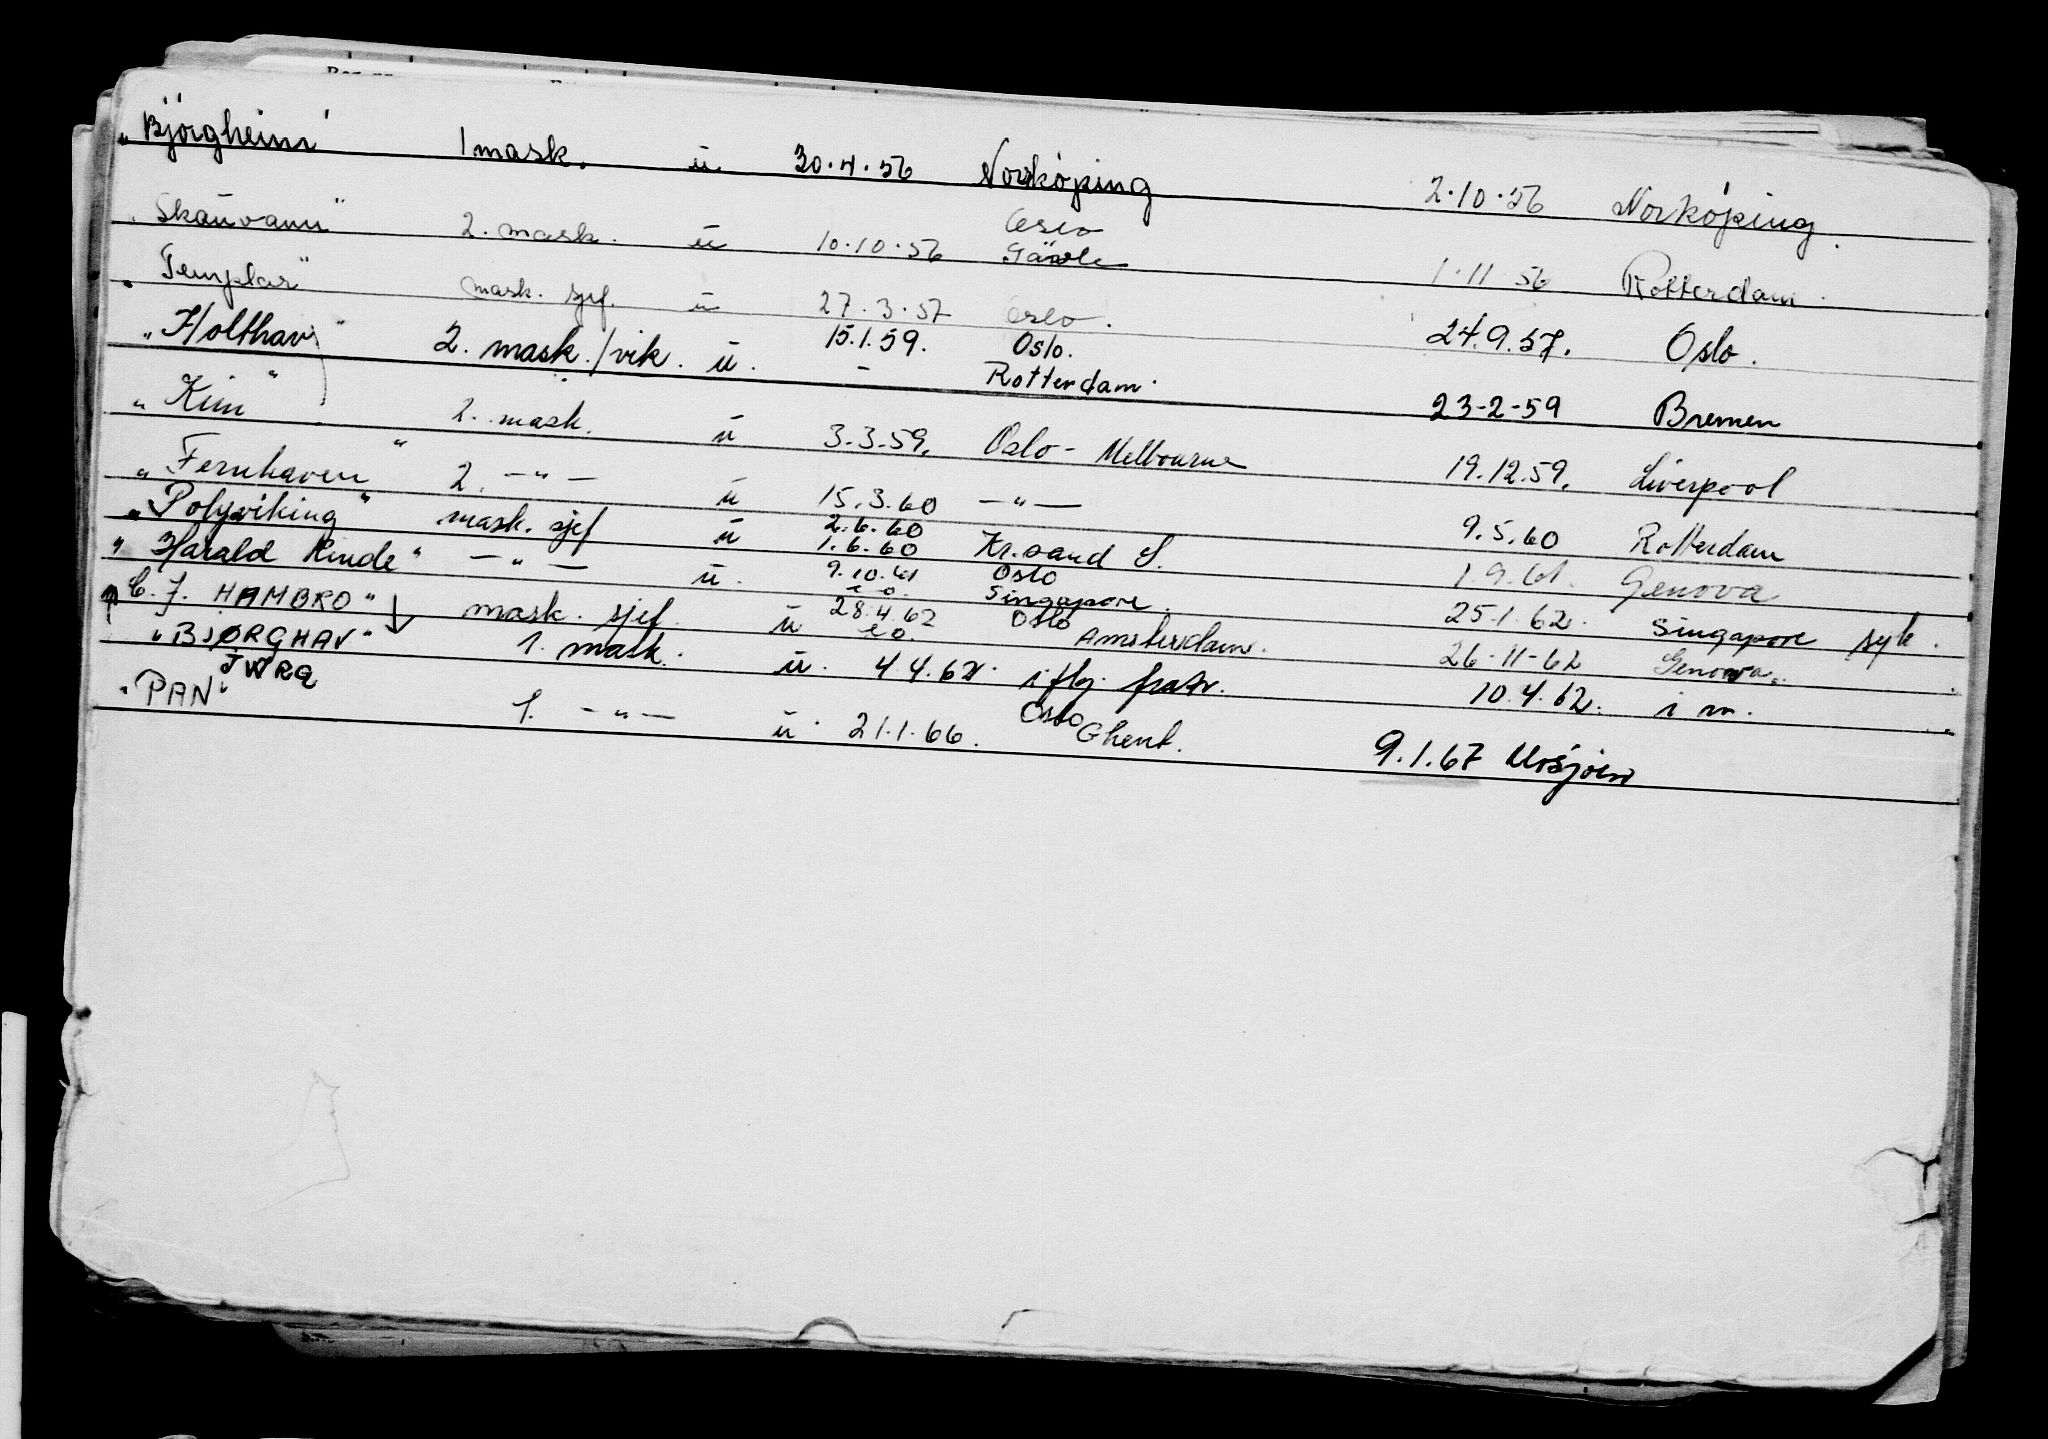 "Bjørgheim" 1 mask. ū 30.4.56 Norrköping 2.10.56 Norköping.
"Skauvann" 2. mask. ū 10.10.56 Oslo Gävle 1.11.56 Rotterdam.
"Templar" mask. sjef. ū 27.3.57 Oslo. 24.9.57. Oslo.
"Holthav" 2. mask./vik. ū. 15.1.59. - Oslo. Rotterdam. 23-2-59 Bremen
"Kim" 2. mask. ū 3.3.59. Oslo - Melbourne 19.12.59. Liverpool
"Fernhaven" 2. —"— ū 15.3.60 —"— 9.5.60 Rotterdam
"Polyviking" mask. sjef ū 2.6.60 1.6.60 Kr.sand S. 1.9.61. Genova
"Harald Hinde" —"— ū. 9.10.61 e o. Oslo Singapore. 25.1.62. Singapore syk.
"C. J. HAMBRO" mask. sjef. ū 28.4.62 e o. Oslo Amsterdam. 26-11-62 Genova.
"BJØRGHAV" 1. mask. ū. 4.4.62. i flg. fratr. 10.4.62. i m.
JWRQ
"PAN" 1. —"— ū. 21.1.66. Oslo Ghent. 9.1.67 Mosjøen